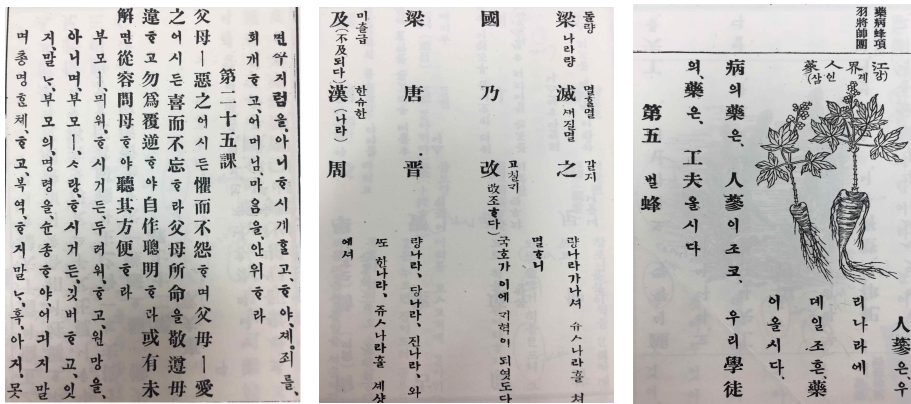 면ᄭᅮ지럼을、아니ᄒᆞ시게ᄒᆞᆯ고、ᄒᆞ야、제죄를、
회개ᄒᆞ고、어머님、마음을、안위ᄒᆞ라
第二十五課
父母ㅣ惡之어시든懼而不怨ᄒᆞ며父母ㅣ愛
之어시든喜而不忘ᄒᆞ라父母所命을敬遵毋
違ᄒᆞ고勿爲覆逆ᄒᆞ야自作聰明ᄒᆞ라或有未
解면從容問母ᄒᆞ야聽其方便ᄒᆞ라
부모ㅣ、믜워、ᄒᆞ시거든、두려워、ᄒᆞ고、원망을、
아니며、부모ㅣ、ᄉᆞ랑、ᄒᆞ시거든、깃버ᄒᆞ고、잇
지、말ᄂᆞ、부모의、명령을、순종ᄒᆞ야、어긔지말
며총명ᄒᆞᆫ쳬、ᄒᆞ고、복역、ᄒᆞ지말ᄂᆞ、혹、아지、못
梁 돌량 나라량 滅 멸ᄒᆞᆯ멸 ᄭᅢ질멸 之 갈지 량나라가나셔 쥬ᄉᆞ나라ᄒᆞᆯ 쳐
멸ᄒᆞ니
國 乃 改 고칠ᄀᆡ (改조ᄒᆞ다) 국호가 이에 ᄀᆡ혁이 되엿도다
梁 唐 晋 량나라、당나라、진나라、와
ᄯᅩ 한나라、쥬ᄉᆞ나라ᄒᆞᆯ 셰샹
及 미츨급 (不及되다) 漢 한슈한 (나라) 周 에셔
藥病蜂項
羽將帥團
江강界계人인蔘(삼)
人蔘은、우
리나라에
데일조흔、藥
이올시다、
病의藥은、人蔘이조코、우리學徒
의、藥은、工夫올시다
第五 벌蜂